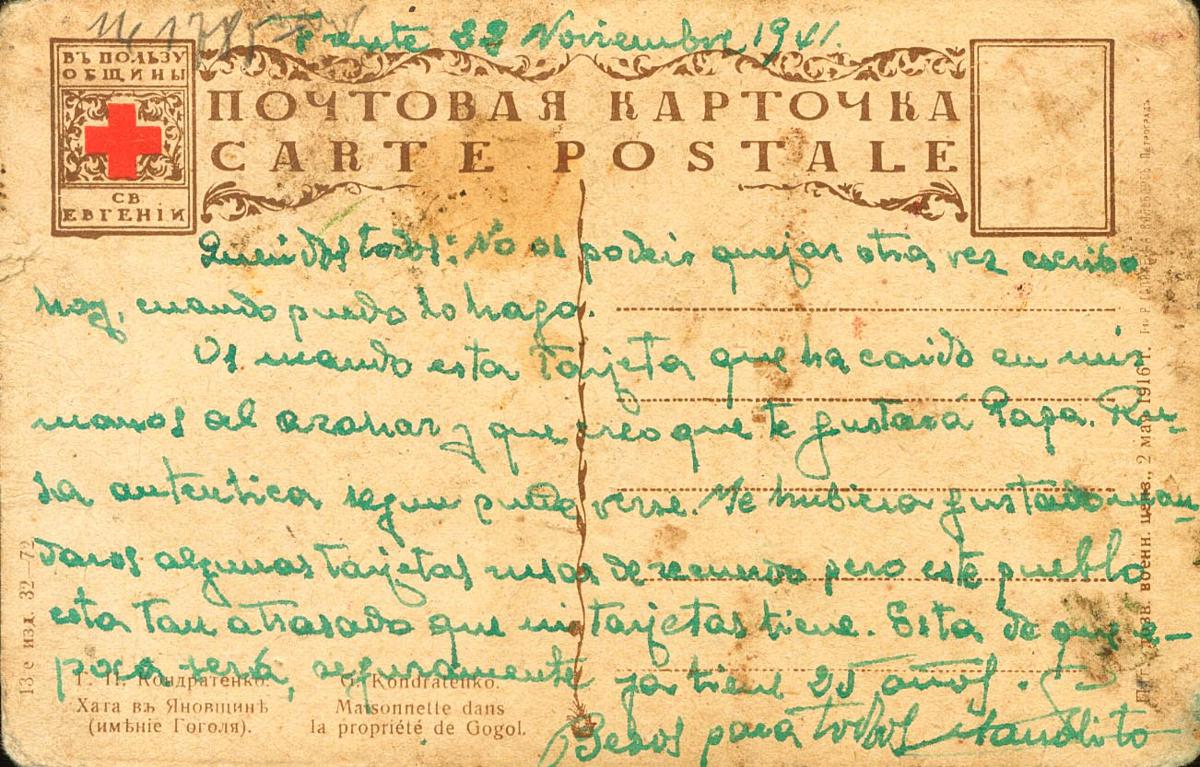 Frente 22 Noviembre 1941.
ВЪ ПОЛЬЗУ
ОБЩИНЫ
СВ
ЕВГЕНІИ
ПОЧТОВАЯ КАРТОЧКА
CARTE POSTALE
Queridos todos: No os podeis quejar otra vez escribo
hoy, cuando puedo lo hago.
Os mando esta tarjeta que ha caido en mis
manos al azahar y que creo que te gustará Papa. Ru-
sa autentica segun puede verse. Me hubiera gustado man-
daros algunas tarjetas rusas de recuerdo pero este pueblo
esta tan atrasado que ni tarjetas tiene. Esta de que e-
poca será, seguramente ya tiene 25 años.
Besos para todos Manolito
Г. П. Кондратенко.
Хата въ Яновщинѣ
(имѣніе Гоголя).
G. Kondratenko.
Maisonnette dans
la propriété de Gogol.
13-е изд. 32—72
военн. ценз., 2 мая 1916 г.